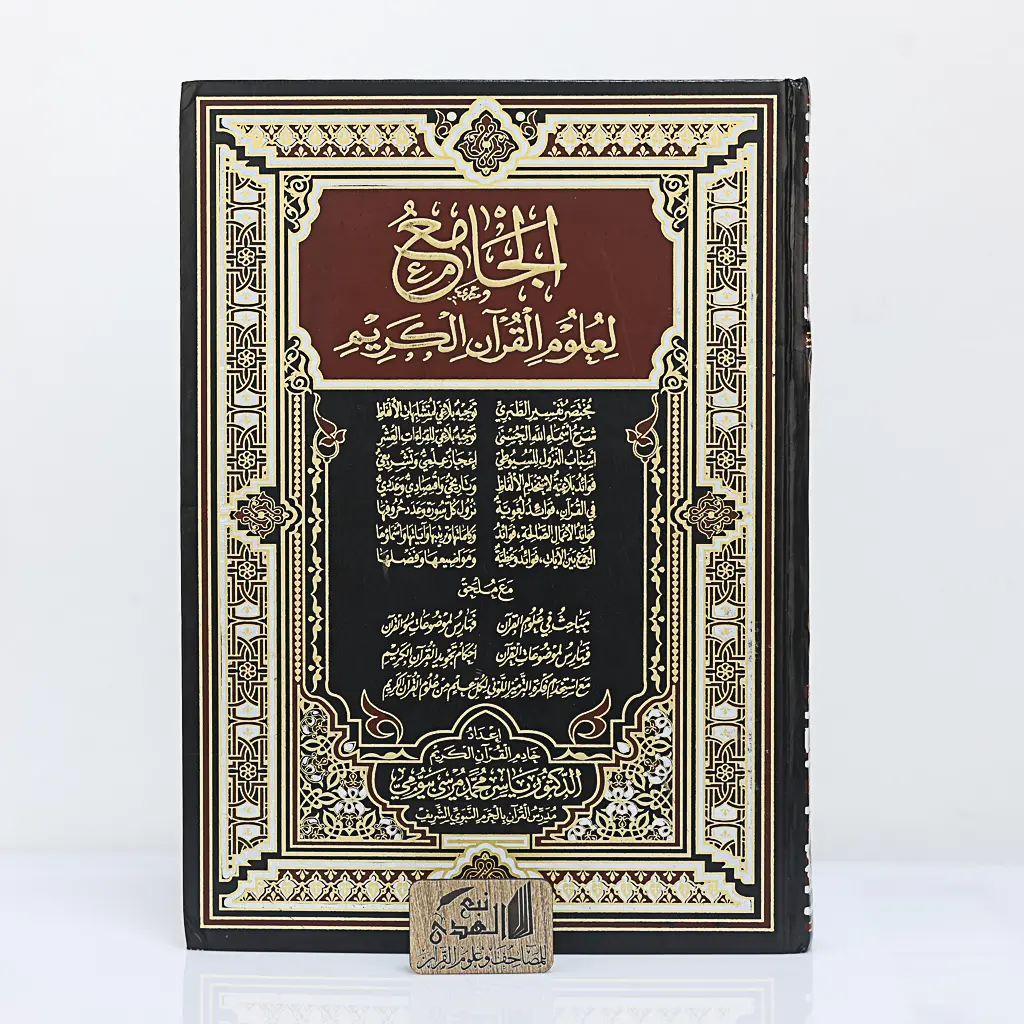 الجَامِع
لِعُلُومِ الْقُرْآنِ الْكَرِيْمِ
مُخْتَصَرُ تَفْسِيرِ الطَّبَرِيِّ
شَرْحُ أَسْمَاءِ اللهِ الْحُسْنَى
أَسْبَابُ النُّزُولِ لِلسُّيُوطِيِّ
فَوَائِدُ بَلَاغِيَّةٌ لِاسْتِخْدَامِ الأَلْفَاظِ
فِي الْقُرْآنِ، فَوَائِدُ لُغَوِيَّةٌ
فَوَائِدُ الأَعْمَالِ الصَّالِحَةِ، فَوَائِدُ
الْجَمْعِ بَيْنَ الآيَاتِ، فَوَائِدُ وَعْظِيَّةٌ
تَوْجِيهٌ بَلَاغِيٌّ لِمُتَشَابِهَاتِ الأَلْفَاظِ
تَوْجِيهٌ بَلَاغِيٌّ لِلْقِرَاءَاتِ الْعَشْرِ
إِعْجَازٌ عِلْمِيٌّ وَتَشْرِيعِيٌّ
وَتَارِيخِيٌّ وَاقْتِصَادِيٌّ وَعَدَدِيٌّ
نُزُولُ كُلِّ سُورَةٍ وَعَدَدُ حُرُوفِهَا
وَكَلِمَاتِهَا وَتَرْتِيبِهَا وَآيَاتِهَا وَأَسْمَاؤُهَا
وَمَوَاضِيعِهَا وَفَضْلِهَا
مَعَ مُلْحَقِ
مَبَاحِثُ فِي عُلُومِ الْقُرْآنِ
فَهَارِسُ لِمَوْضُوعَاتِ الْقُرْآنِ
فَهَارِسُ لِمَوْضُوعَاتِ سُوَرِ الْقُرْآنِ
أَحْكَامُ تَجْوِيدِ الْقُرْآنِ الْكَرِيْمِ
مَعَ اسْتِخْدَامِ فِكْرَةِ التَّرْمِيزِ اللَّوْنِيِّ لِكُلِّ عِلْمٍ مِنْ عُلُومِ الْقُرْآنِ الْكَرِيْمِ
إِعْدَادُ
خَادِمِ الْقُرْآنِ الْكَرِيْمِ
الدكتور ياسر محمد مرسي بيومي
مُدَرِّسُ الْقُرْآنِ بِالْحَرَمِ النَّبَوِيِّ الشَّرِيْفِ
نبع
الهدى
للمصاحف وعلوم القرآن